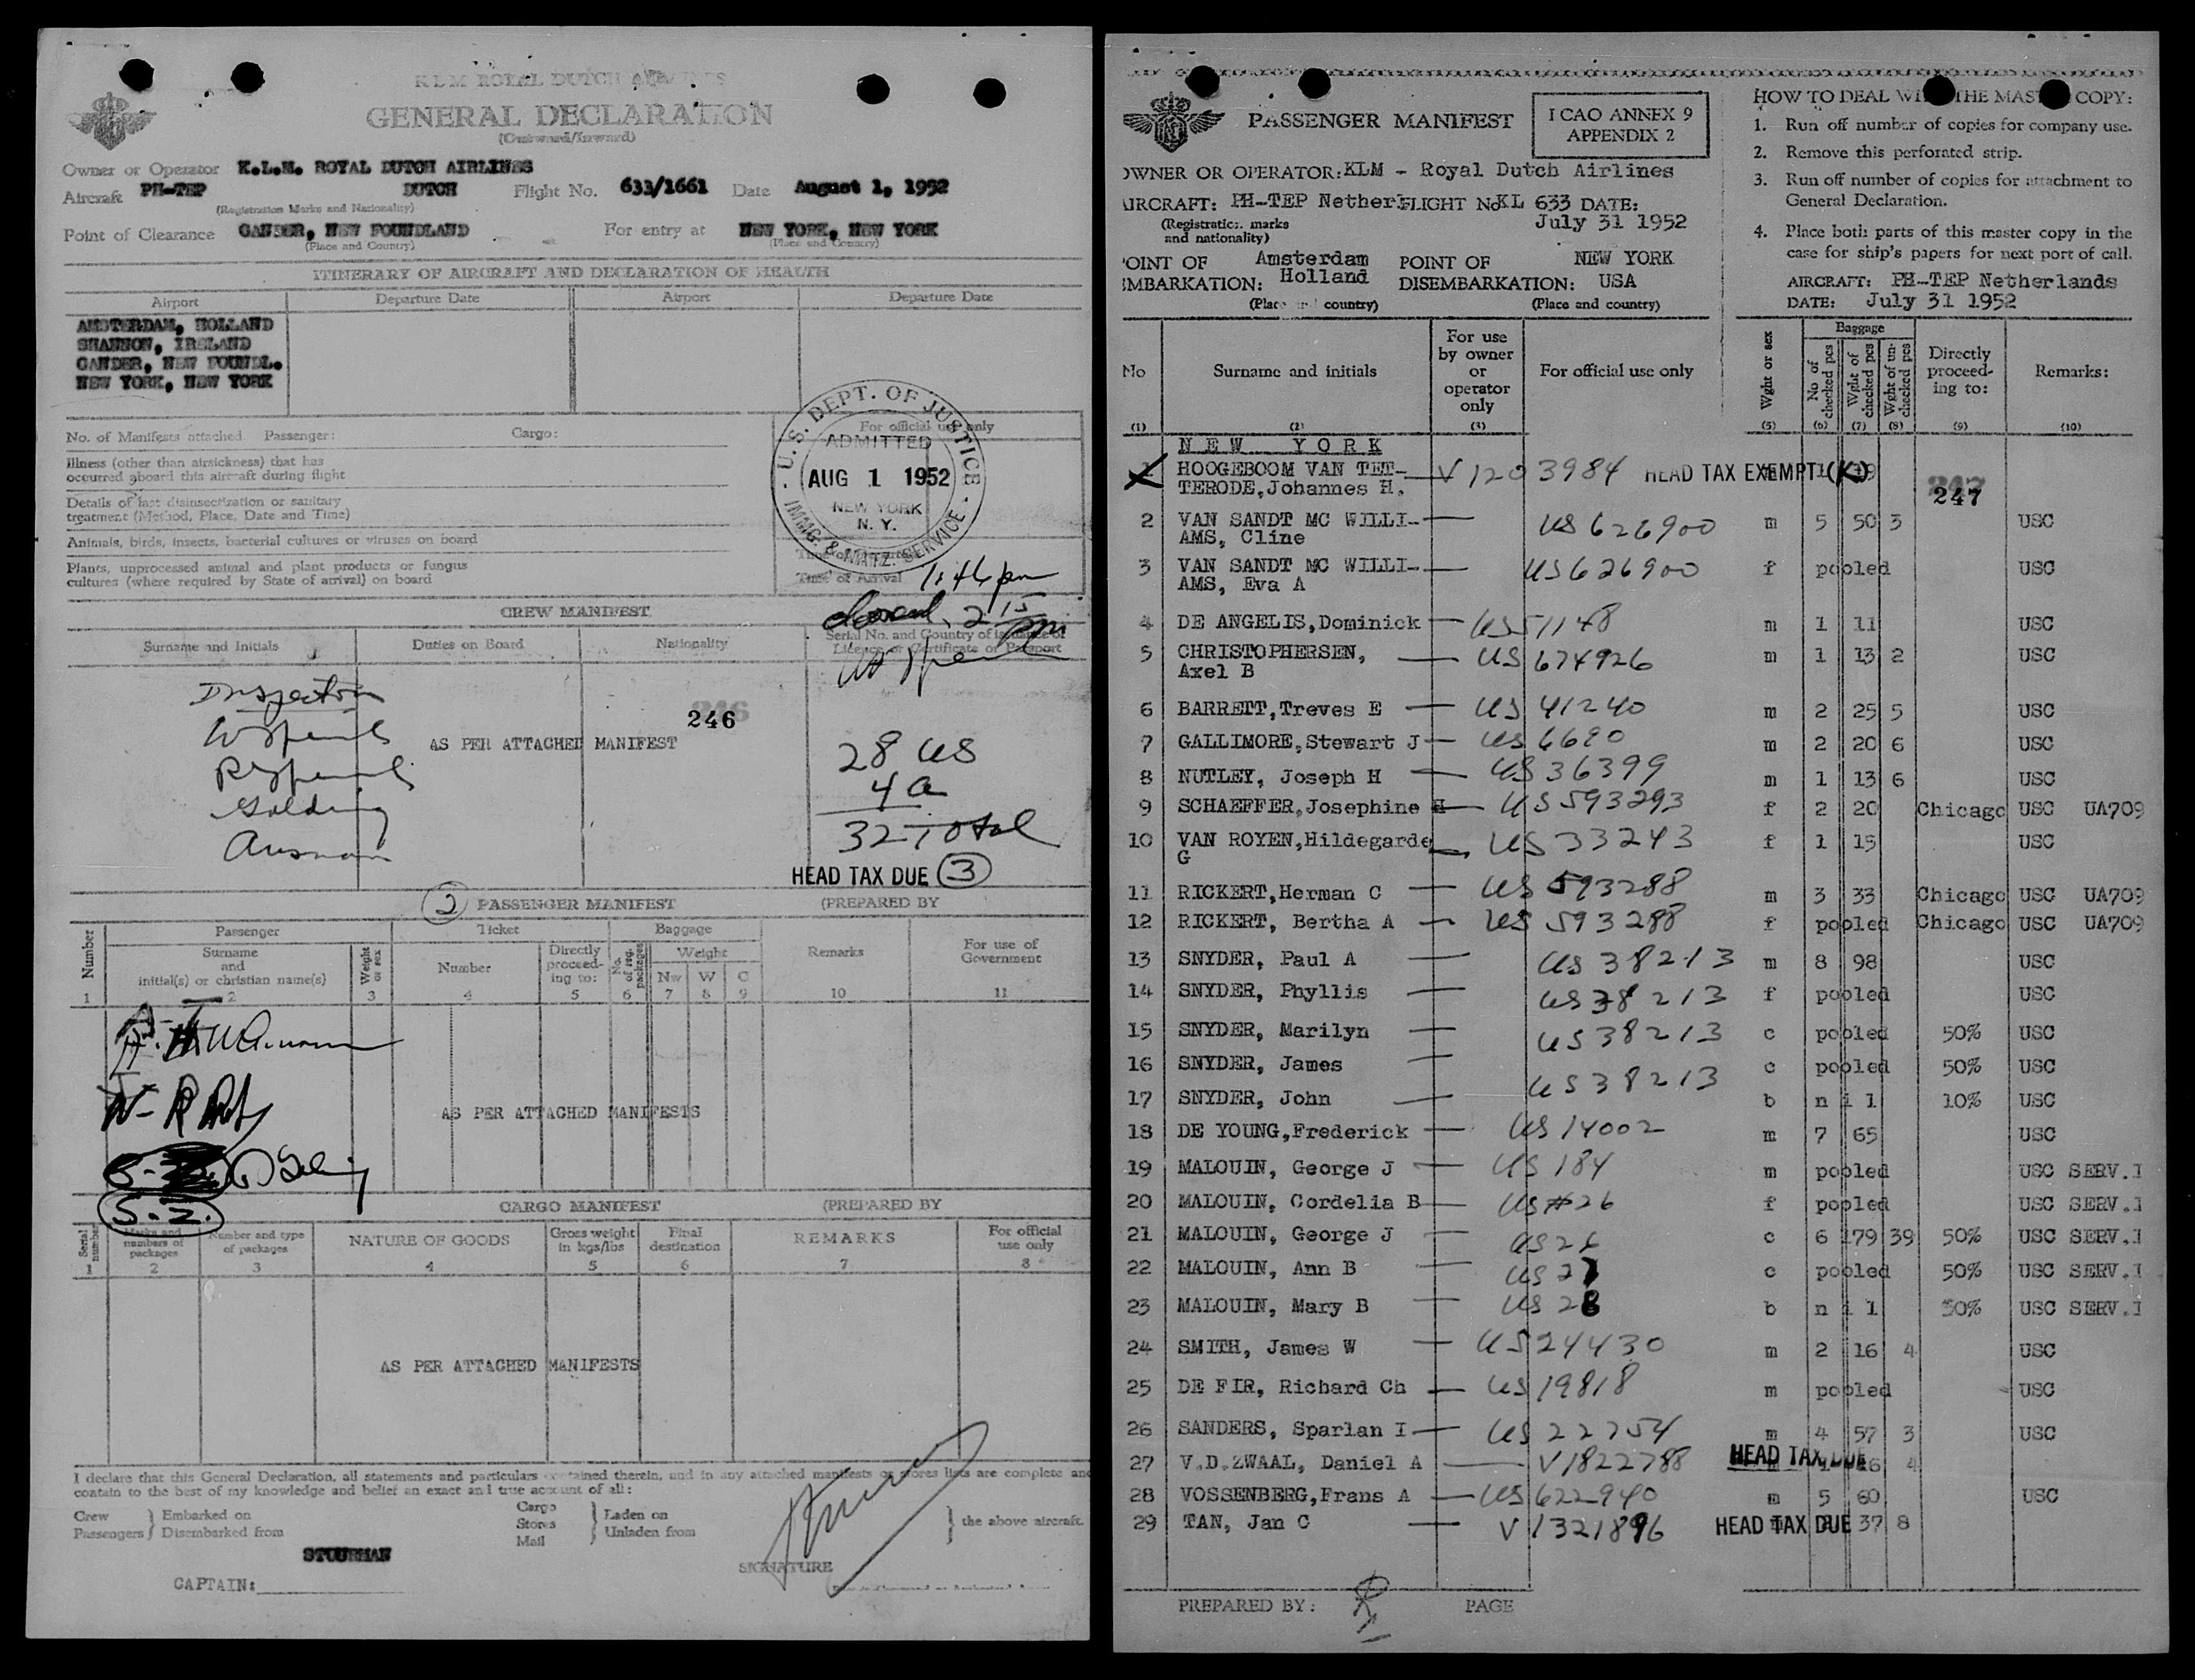 KLM ROYAL DUTCH AIRLINES
GENERAL DECLARATION
(Outward/Inward)
Owner or Operator K.L.M. ROYAL DUTCH AIRLINES
Aircraft PH-TEP DUTCH Flight No. 633/1661 Date August 1, 1952
(Registration Marks and Nationality)
Point of Clearance GANDER, NEW FOUNDLAND For entry at NEW YORK, NEW YORK
(Place and Country) (Place and Country)
ITINERARY OF AIRCRAFT AND DECLARATION OF HEALTH
Airport Departure Date Airport Departure Date
AMSTERDAM, HOLLAND
SHANNON, IRELAND
GANDER, NEW FOUNDL.
NEW YORK, NEW YORK
No. of Manifests attached Passenger: Cargo: For official use only
Illness (other than airsickness) that has
occurred aboard this aircraft during flight
Details of last disinsectization or sanitary
treatment (Method, Place, Date and Time)
Animals, birds, insects, bacterial cultures or viruses on board
Plants, unprocessed animal and plant products or fungus
cultures (where required by State of arrival) on board
U.S. DEPT. OF JUSTICE
ADMITTED
AUG 1 1952
NEW YORK
N. Y.
IMMIG. & NATZ. SERVICE
Time of Arrival 1:46 pm
2 15 pm
CREW MANIFEST
Surname and Initials Duties on Board Nationality Serial No. and Country of issuance of
Licence or Certificate or Passport
Inspectors
246
AS PER ATTACHED MANIFEST
Golding
28 US
4 a
32 Total
HEAD TAX DUE 3
2 PASSENGER MANIFEST (PREPARED BY
Number Passenger Ticket Baggage Remarks For use of
Government
Surname
and
initial(s) or christian name(s) Weight
or sex Number Directly
proceed-
ing to: No.
of reg.
packages Weight
Nw W C
1 2 3 4 5 6 7 8 9 10 11
AS PER ATTACHED MANIFESTS
S.2.
CARGO MANIFEST (PREPARED BY
Serial
number Marks and
numbers of
packages Number and type
of packages NATURE OF GOODS Gross weight
in kgs/lbs Final
destination REMARKS For official
use only
1 2 3 4 5 6 7 8
AS PER ATTACHED MANIFESTS
I declare that this General Declaration, all statements and particulars contained therein, and in any attached manifests or stores lists are complete and
contain to the best of my knowledge and belief an exact and true account of all:
Crew
Passengers } Embarked on
Disembarked from Cargo
Stores
Mail } Laden on
Unladen from } the above aircraft.
STUURMAN
CAPTAIN: SIGNATURE
PASSENGER MANIFEST
ICAO ANNEX 9
APPENDIX 2
HOW TO DEAL WITH THE MASTER COPY:
1. Run off number of copies for company use.
2. Remove this perforated strip.
3. Run off number of copies for attachment to
General Declaration.
4. Place both parts of this master copy in the
case for ship's papers for next port of call.
AIRCRAFT: PH-TEP Netherlands
DATE: July 31 1952
OWNER OR OPERATOR: KLM - Royal Dutch Airlines
AIRCRAFT: PH-TEP Netherl FLIGHT NO KL 633 DATE:
(Registration marks
and nationality) July 31 1952
POINT OF
EMBARKATION: Amsterdam
Holland POINT OF
DISEMBARKATION: NEW YORK
USA
(Place and country) (Place and country)
No Surname and initials For use
by owner
or
operator
only For official use only Wght or sex Baggage
No of
checked pcs Wght of
checked pcs Wght of un-
checked pcs Directly
proceed-
ing to: Remarks:
(1) (2) (3) (5) (6) (7) (8) (9) (10)
NEW YORK
1 HOOGEBOOM VAN TET-
TERODE, Johannes H. V 1203984 HEAD TAX EXEMPT (K) 247
2 VAN SANDT MC WILLI-
AMS, Cline US 626900 m 5 50 3 USC
3 VAN SANDT MC WILLI-
AMS, Eva A US 626900 f pooled USC
4 DE ANGELIS, Dominick US 51148 m 1 11 USC
5 CHRISTOPHERSEN,
Axel B US 674926 m 1 13 2 USC
6 BARRETT, Treves E US 41240 m 2 25 5 USC
7 GALLIMORE, Stewart J US 6690 m 2 20 6 USC
8 NUTLEY, Joseph H US 36399 m 1 13 6 USC
9 SCHAEFFER, Josephine H US 593293 f 2 20 Chicago USC UA709
10 VAN ROYEN, Hildegarde
G US 33243 f 1 15 USC
11 RICKERT, Herman C US 593288 m 3 33 Chicago USC UA709
12 RICKERT, Bertha A US 593288 f pooled Chicago USC UA709
13 SNYDER, Paul A US 38213 m 8 98 USC
14 SNYDER, Phyllis US 38213 f pooled USC
15 SNYDER, Marilyn US 38213 c pooled 50% USC
16 SNYDER, James c pooled 50% USC
17 SNYDER, John US 38213 b nil 10% USC
18 DE YOUNG, Frederick US 14002 m 7 65 USC
19 MALOUIN, George J US 184 m pooled USC SERV.I
20 MALOUIN, Cordelia B US #26 f pooled USC SERV.I
21 MALOUIN, George J US 26 c 6 179 39 50% USC SERV.I
22 MALOUIN, Ann B US 27 c pooled 50% USC SERV.I
23 MALOUIN, Mary B US 28 b nil 50% USC SERV.I
24 SMITH, James W US 24430 m 2 16 4 USC
25 DE FIR, Richard Ch US 19818 m pooled USC
26 SANDERS, Sparlan I US 22754 m 4 57 3 USC
27 V.D.ZWAAL, Daniel A V 1822788 HEAD TAX DUE 4
28 VOSSENBERG, Frans A US 622940 m 5 60 USC
29 TAN, Jan C V 1321896 HEAD TAX DUE 37 8
PREPARED BY: PAGE